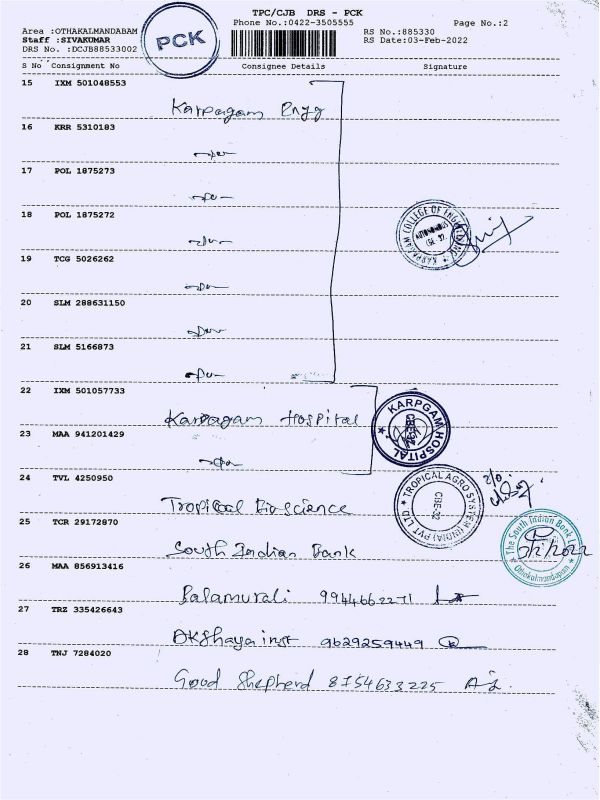 TPC/CJB DRS - PCK
Phone No.:0422-3505555
Page No.:2
Area :OTHAKALMANDABAM
Staff :SIVAKUMAR
DRS No. :DCJB88533002
PCK
RS No.:885330
RS Date:03-Feb-2022
S No Consignment No Consignee Details Signature
15 IXM 501048553
Karpagam Engg
16 KRR 5310183
17 POL 1875273
18 POL 1875272
KARPAGAM COLLEGE OF ENGINEERING
AUTONOMOUS
CBE-32
19 TCG 5026262
20 SLM 288631150
21 SLM 5166873
22 IXM 501057733
Karpagam Hospital
KARPGAM HOSPITAL
CBE-32
23 MAA 941201429
24 TVL 4250950
Tropical Bioscience
TROPICAL AGRO SYSTEM (INDIA) PVT LTD
CBE-32
25 TCR 29172870
South Indian Bank
The South Indian Bank
Othakalmandapam
26 MAA 856913416
Balamurali 9944662271
27 TRZ 335426643
Akshaya inst 9629259449
28 TNJ 7284020
Good Shepherd 8754633225